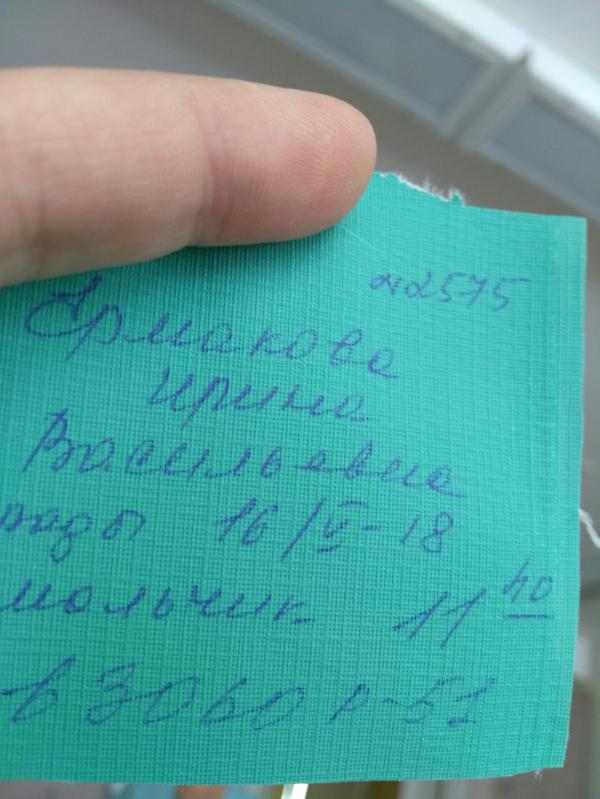 №2575
Ермакова
Ирина
Васильевна
роды 16/V-18
мальчик 11 40
в 3060 р-51